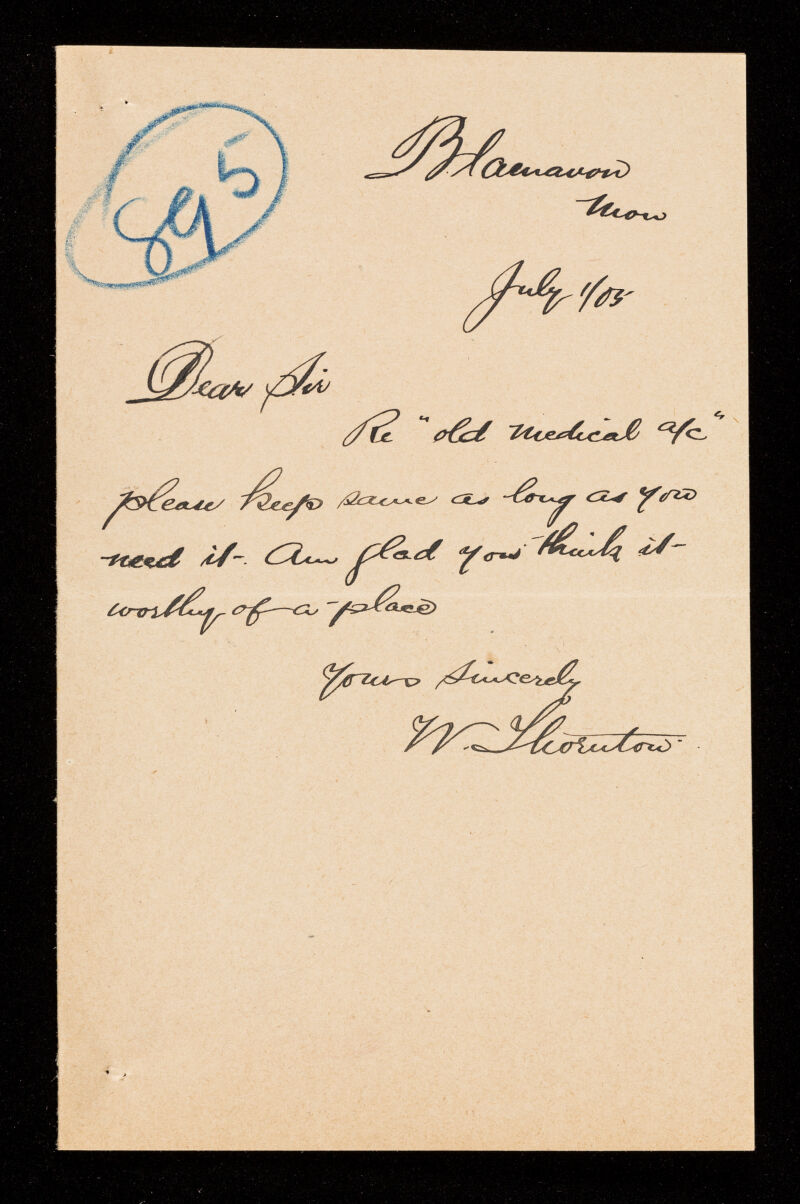 895
Blaenavon
Mon
July 1/05
Dear Sir
Re "old medical a/c"
please keep same as long as you
need it. Am glad you think it
worthy of a place
Yours sincerely
W. Thornton